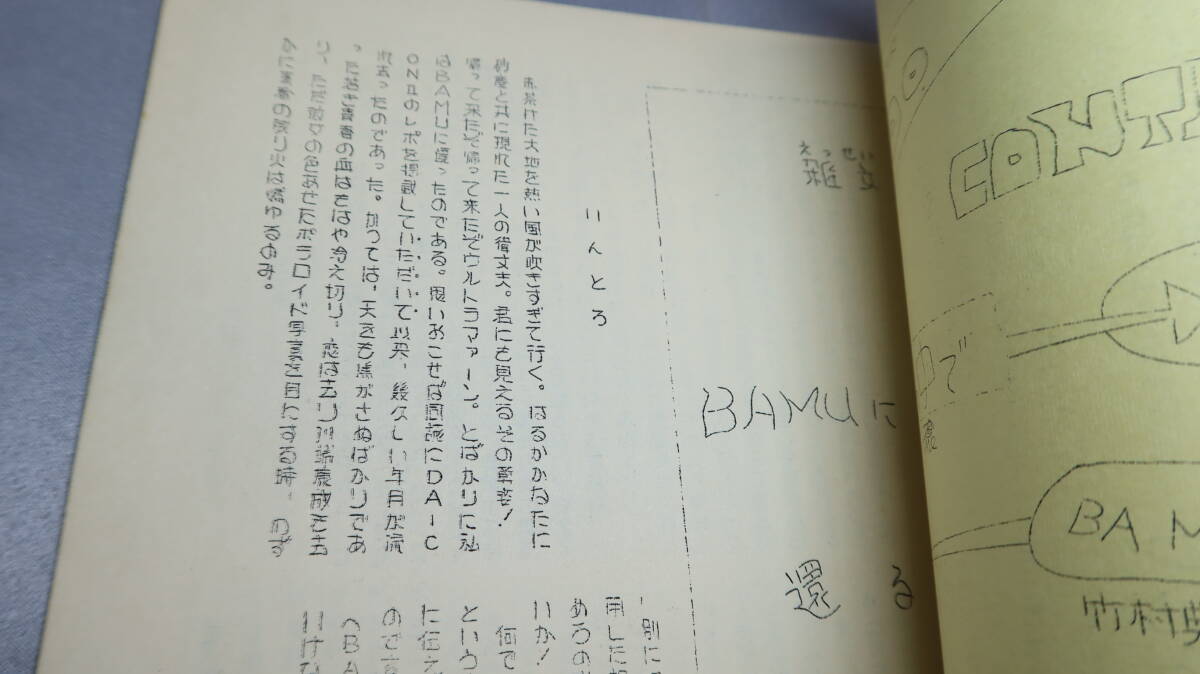 CONTI
えっせい
雑文
中で
BAMUに
還る
BAM
竹村
いんとろ
赤茶けた大地を熱い風が吹きすぎて行く。はるかかなたに
砂塵と共に現れた一人の偉丈夫。君にも見えるその勇姿!
帰って来たぞ帰って来たぞウルトラマァーン。とばかりに私
はBAMUに還ったのである。思いおこせば同誌にDAIC
ONⅡのレポを掲載していただいて以来、幾久しい年月が流
れ去ったのであった。かつては、天をも焦がさぬばかりであ
った若き青春の血はもはや冷え切り、恋は去り川端康成も去
り、ただ彼女の色あせたポラロイド写真を目にする時、わず
かに青春の残り火は燃ゆるのみ。
別に
用した
あるの
いか!
何で
という
に伝え
ので
〈BA
いけな